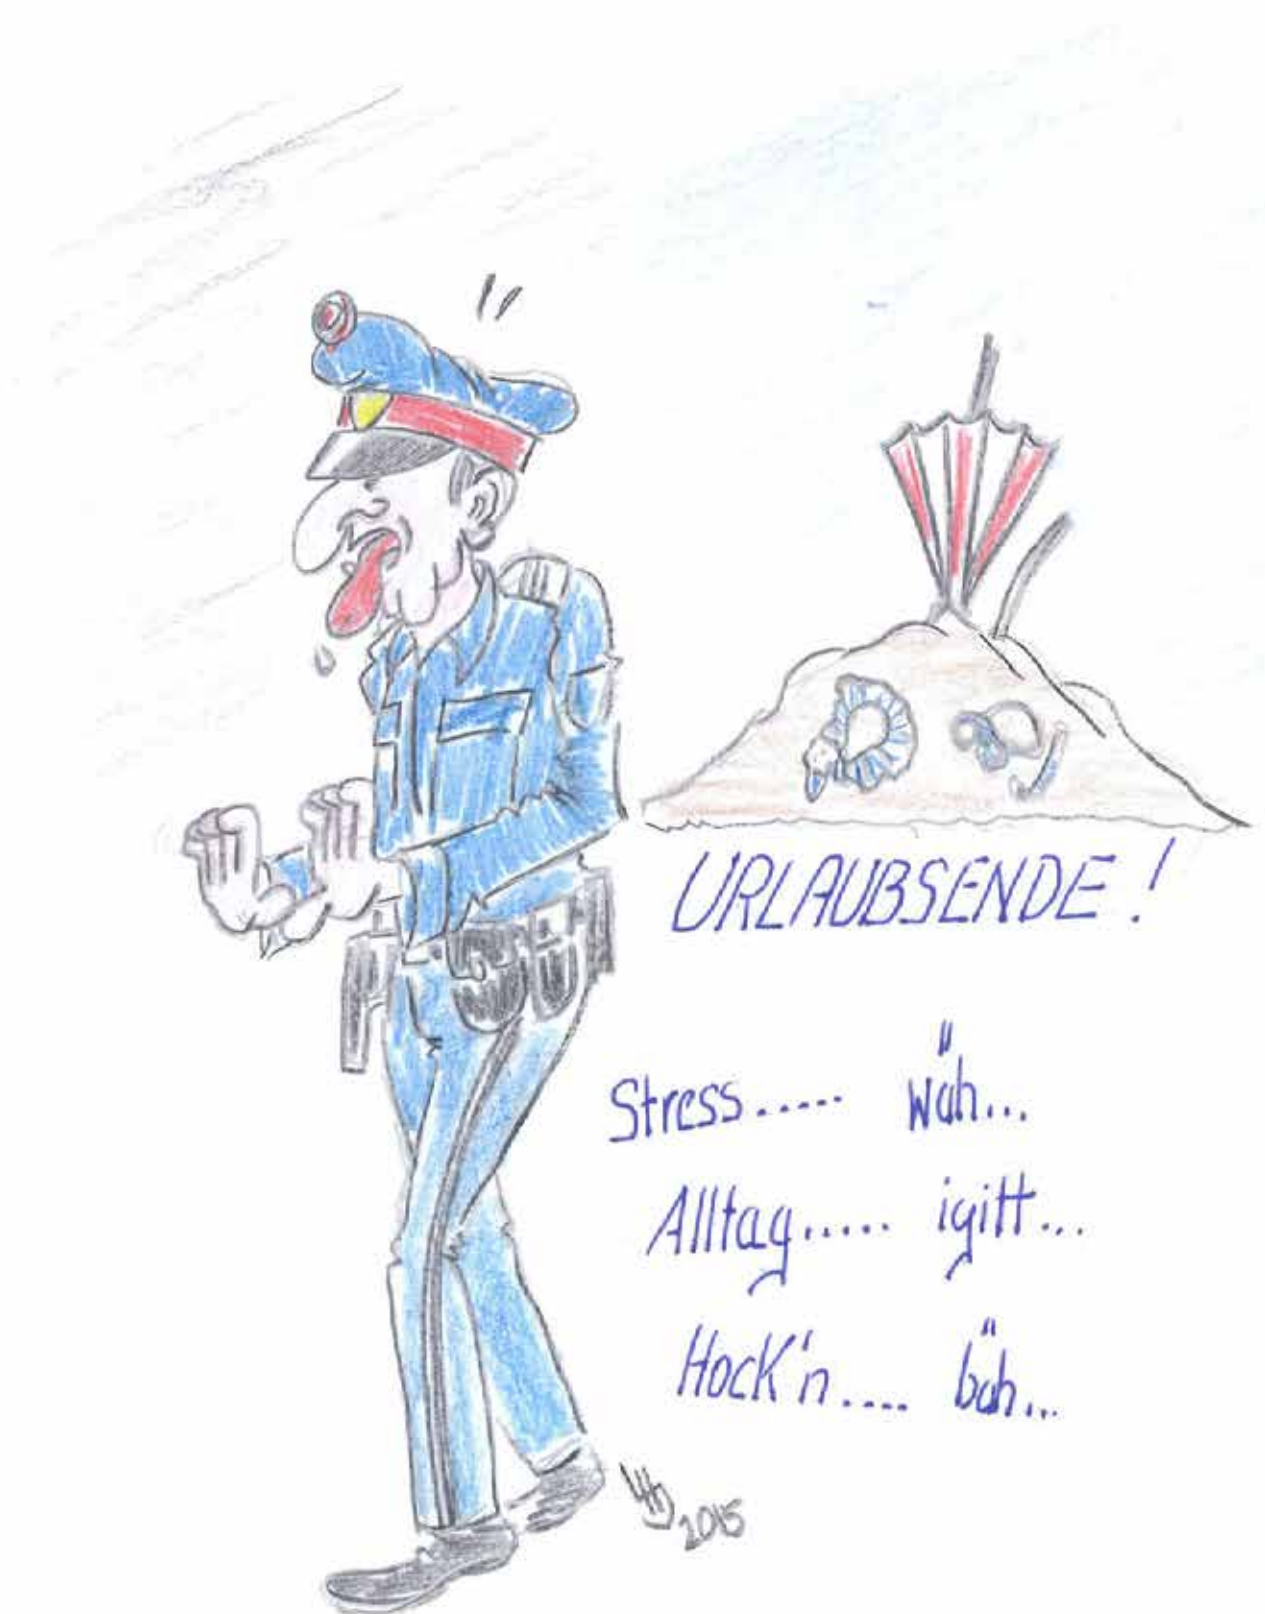 URLAUBSENDE!
Stress..... wäh...
Alltag..... igitt...
Hock'n.... bäh...
2015